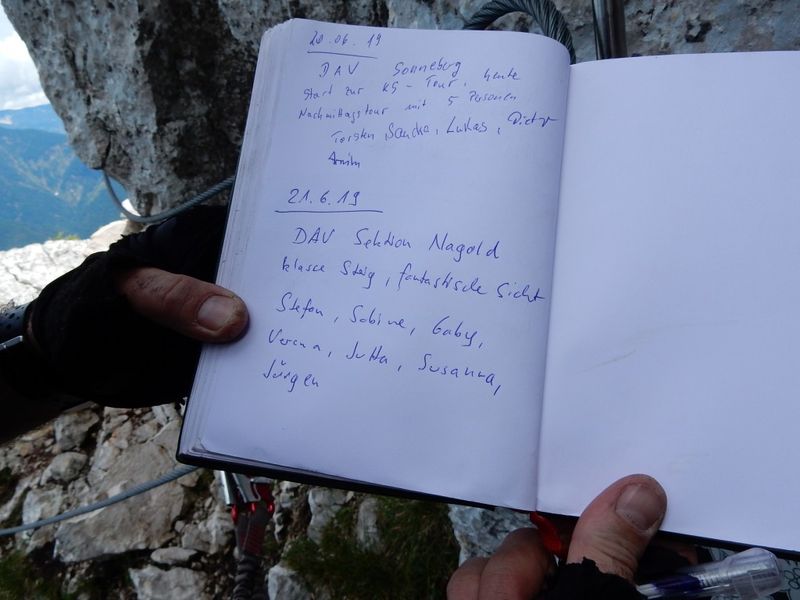 20.06.19
DAV Sonneberg
Start zur KS-Tour, heute
Nachmittagstour mit 5 Personen
Torsten, Sandra, Lukas,
Armin
21.6.19
DAV Sektion Nagold
klasse Steig, fantastische Sicht
Stefan, Sabine, Gaby,
Verena, Jutta, Susanna,
Jürgen